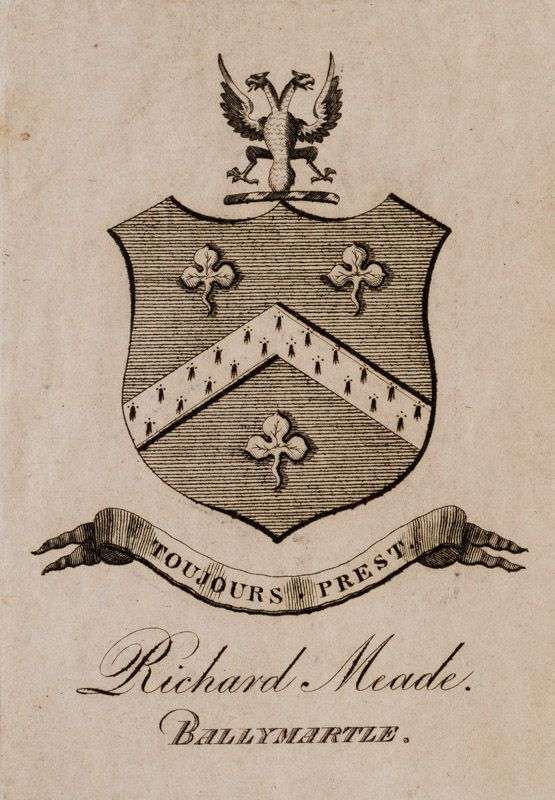 TOUJOURS . PREST.
Richard Meade.
BALLYMARTLE.